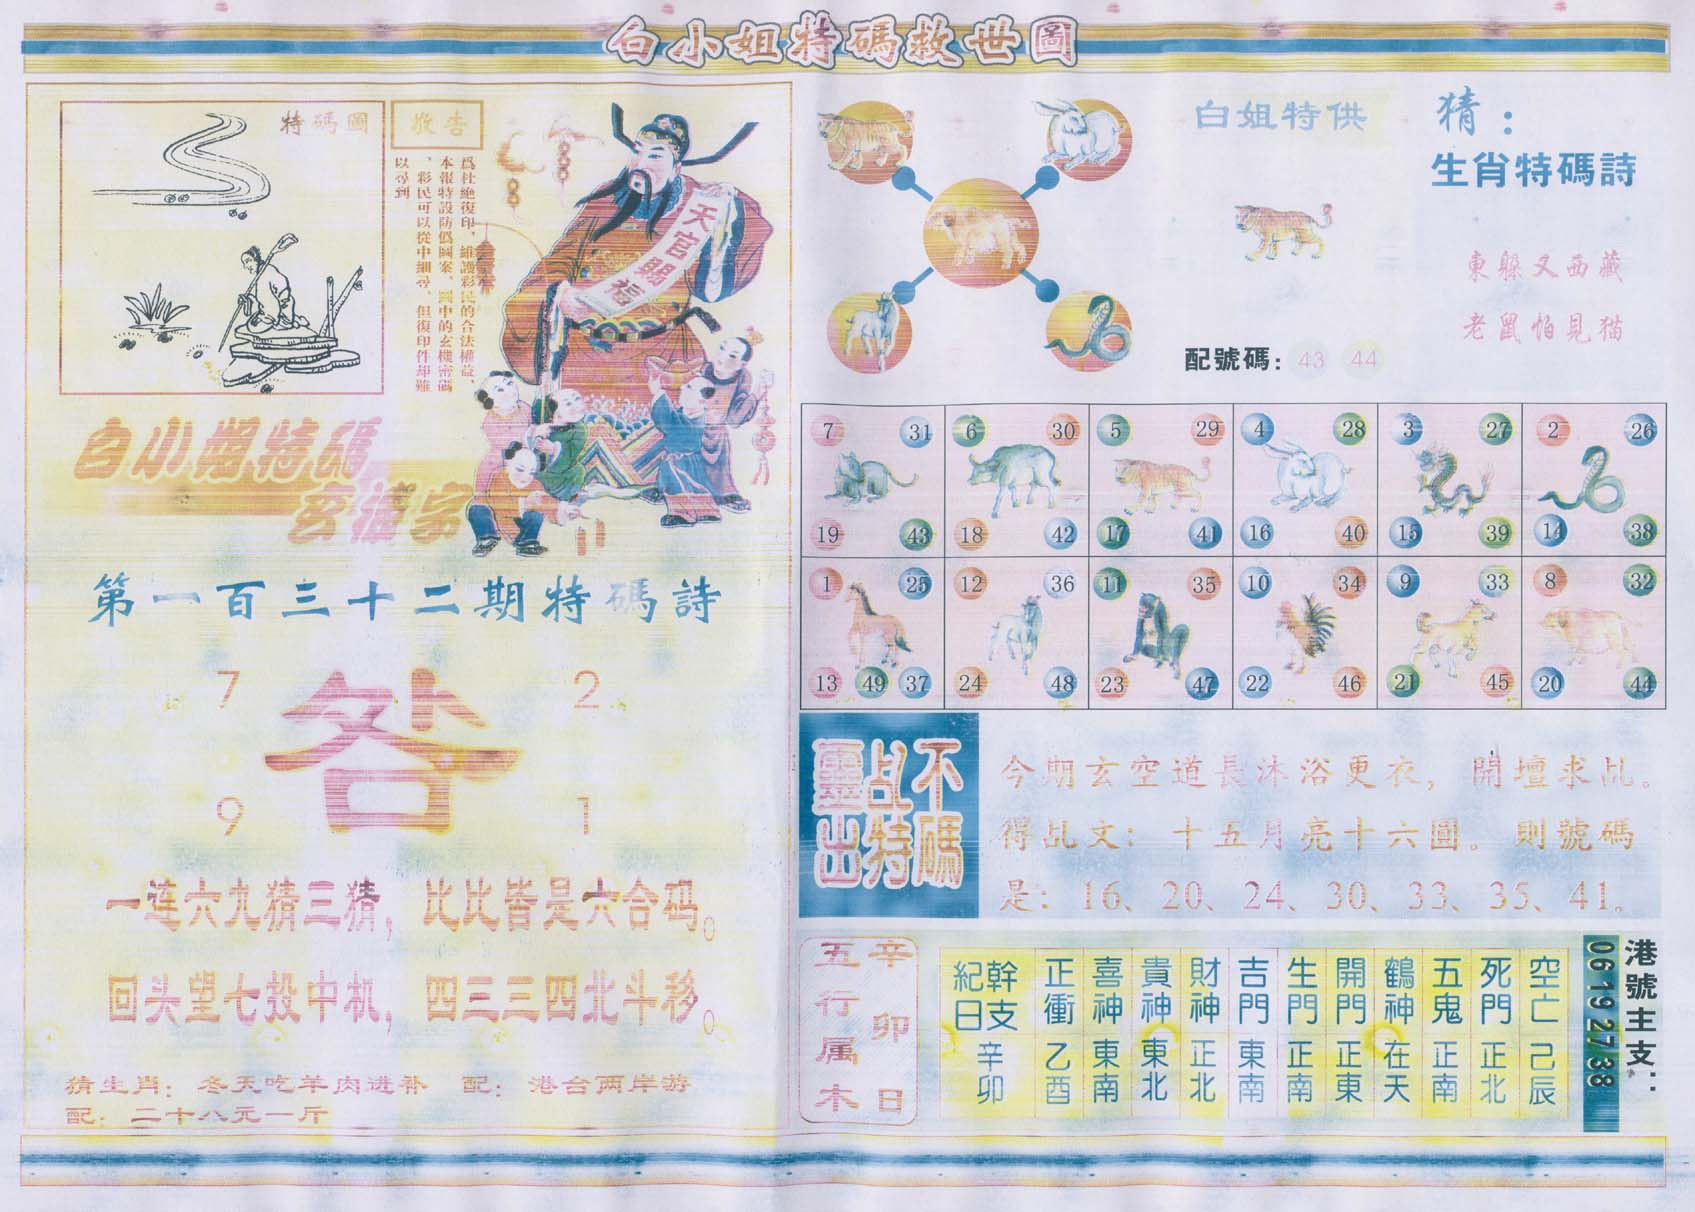 白小姐特碼救世圖
特碼圖
敬告
爲杜絶復印，維護彩民的合法權益，
本報特設防僞圖案、圖中的玄機密碼
，彩民可以從中細尋、但復印件却難
以尋到
天官賜福
白小姐特碼
玄機字
第一百三十二期特碼詩
7 2
9 1
一连六九猜三猜，比比皆是六合码。
回头望七投中机，四三三四北斗移。
猜生肖：冬天吃羊肉进补 配：港台两岸游
配：二十八元一斤
白姐特供
配號碼：43 44
猜：
生肖特碼詩
東躲又西藏
老鼠怕見猫
7 31 6 30 5 29 4 28 3 27 2 26
19 43 18 42 17 41 16 40 15 39 14 38
1 25 12 36 11 35 10 34 9 33 8 32
13 49 37 24 48 23 47 22 46 21 45 20 44
不碼
乩特
靈出
今期玄空道長沐浴更衣，開壇求乩。
得乩文：十五月亮十六圓。則號碼
是：16、20、24、30、33、35、41。
辛卯日
五行属木
幹支紀日 正衝 喜神 貴神 財神 吉門 生門 開門 鶴神 五鬼 死門 空亡
辛卯 乙酉 東南 東北 正北 東南 正南 正東 在天 正南 正北 己辰
港號主支：
06 19 27 38